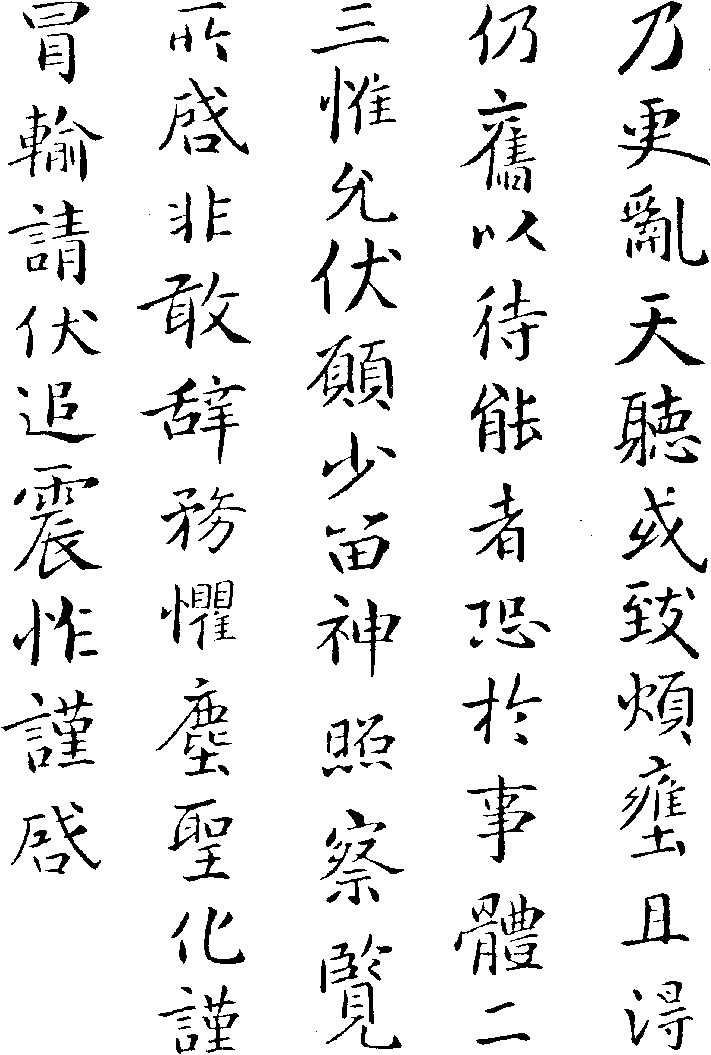 乃更亂天聽或致煩壅且淂
仍舊以待能者恐於事體二
三惟允伏願少留神照察覽
所啓非敢辞務懼塵聖化謹
冒輸請伏追震怍謹啓